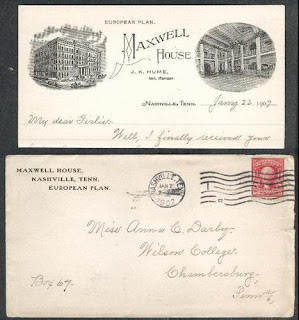 EUROPEAN PLAN.
MAXWELL
HOUSE
J. K. HUME,
NASHVILLE, TENN. Jan'y 22 1907
My dear Girlie:
Well, I finally received your
MAXWELL HOUSE,
NASHVILLE, TENN.
EUROPEAN PLAN.
NASHVILLE
JAN
1907
Miss Anna C. Darby
Wilson College,
Chambersburg,
Penn'a
Box 67.